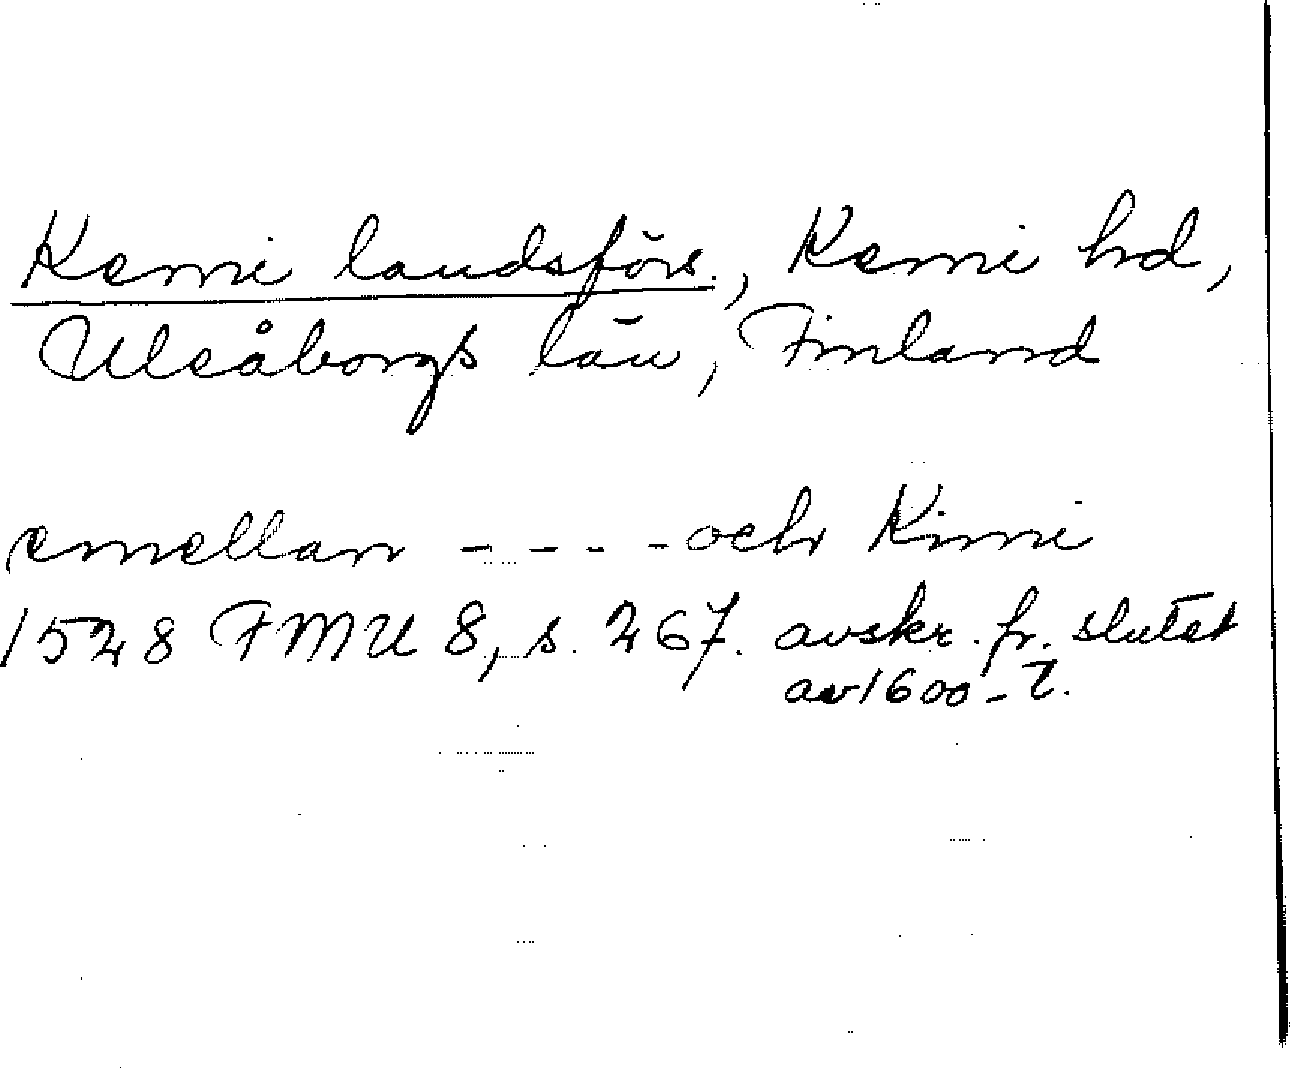 Kemi landsförs., Kemi hd,
Uleåborgs län, Finland
emellan - - - - och Kimi
1528 FMU 8, s. 267. avskr. fr. slutet
av 1600-t.